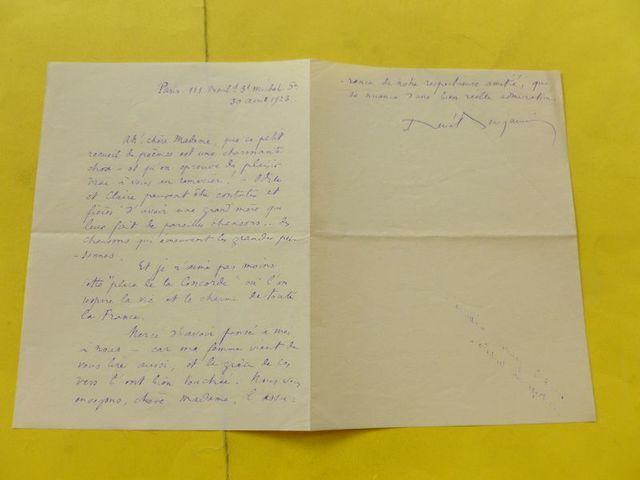 Paris 111 Boul.d St Michel 5e
30 avril 1923
Ah! chère Madame, que ce petit
recueil de poèmes est une charmante
chose – et qu'on éprouve de plaisir
à vous en remercier! –
et Claire peuvent être contentes et
fières d'avoir une grand'mère qui
leur fait de pareilles chansons... des
chansons qui émeuvent les grandes per-
sonnes.
Et je n'aime pas moins
cette "place de la Concorde" où l'on
respire la vie et le charme de toute
la France.
Merci d'avoir pensé à moi
à nous – car ma femme vient de
vous lire aussi, et la grâce de ces
vers l'ont bien touchée. Nous vous
envoyons, chère Madame, l'assu-
rance de notre respectueuse amitié, que
se nuance d'une bien réelle admiration